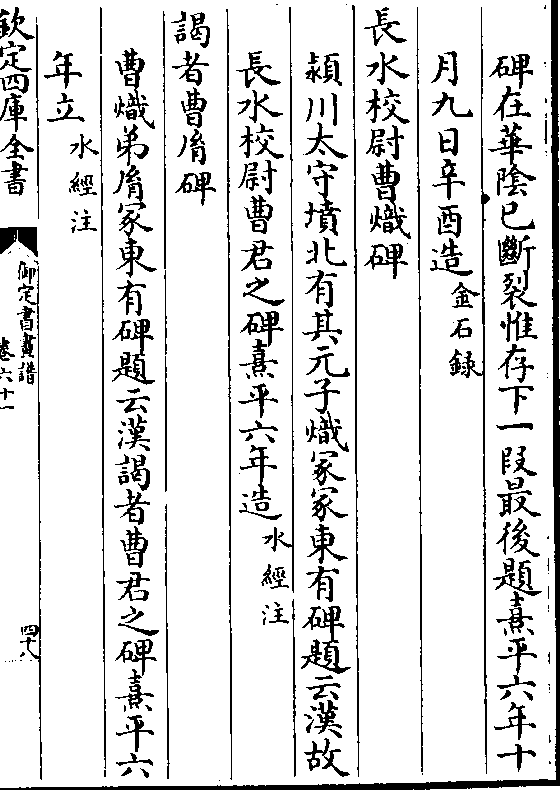 碑在華陰已斷裂惟存下一段最後題熹平六年十
月九日辛酉造金石録
長水校尉曹熾碑
潁川太守墳北有其元子熾冢冢東有碑題云漢故
長水校尉曹君之碑熹平六年造水經注
謁者曹𦙍碑
曹熾弟𦙍冢東有碑題云漢謁者曹君之碑熹平六
年立水經注
欽定四庫全書
御定書畫譜
卷六十一
四十八